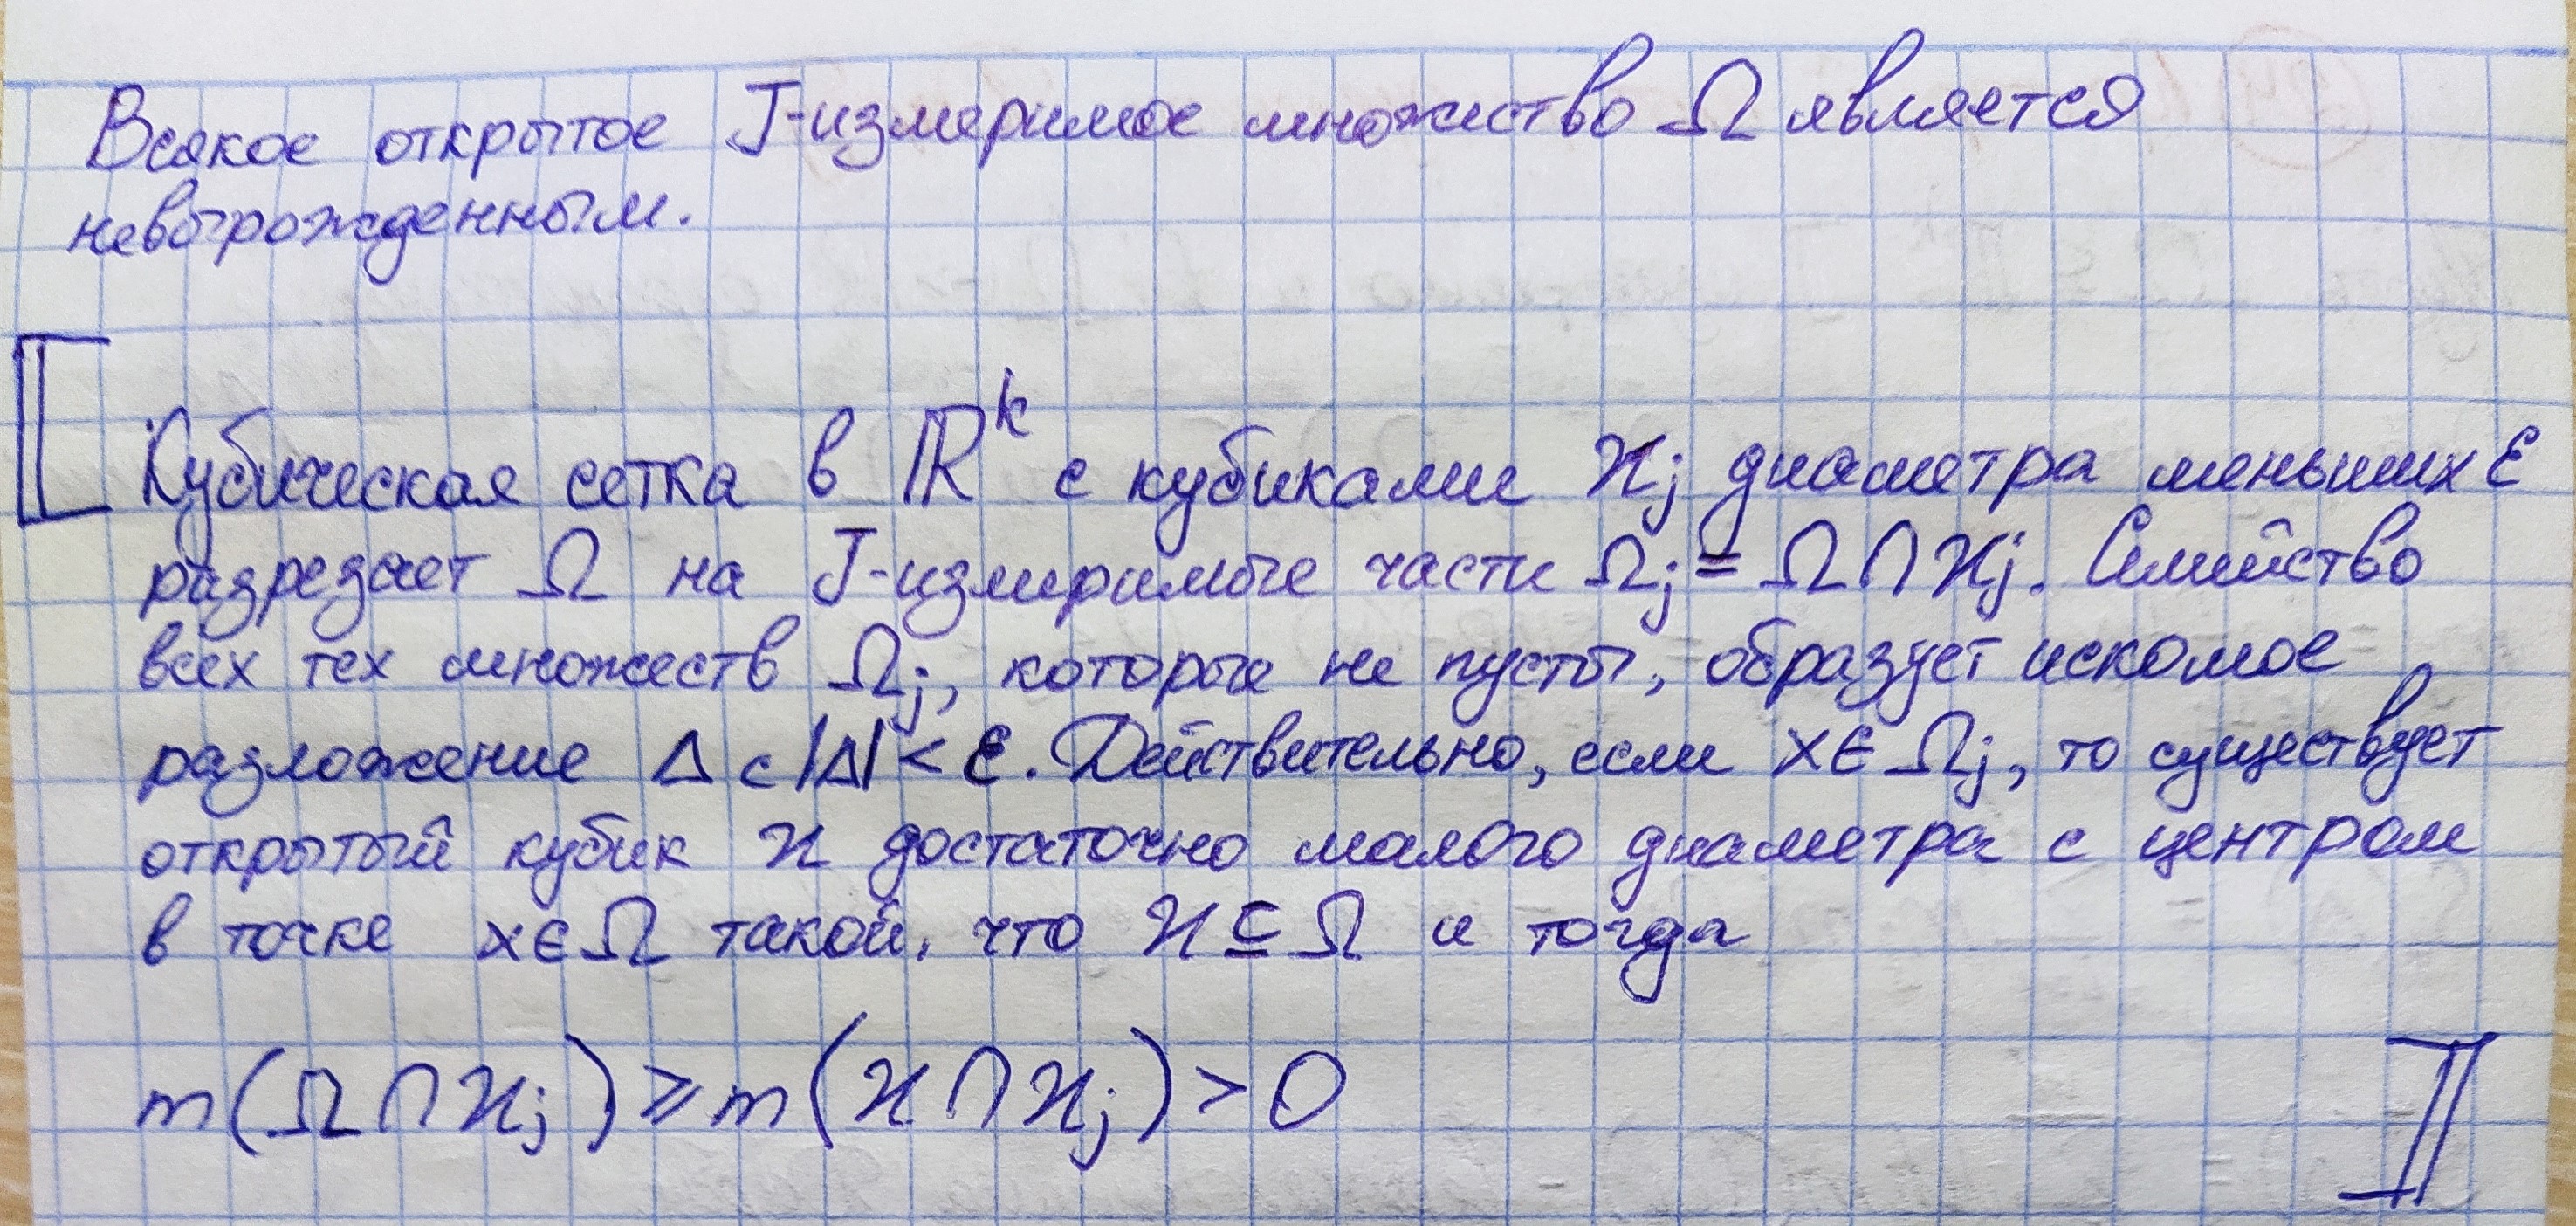 Всякое открытое J-измеримое множество Ω является
невырожденным.
Кубическая сетка в ℝᵏ с кубиками ϰⱼ диаметра меньших ε
разрезает Ω на J-измеримые части Ωⱼ = Ω ∩ ϰⱼ. Семейство
всех тех множеств Ωⱼ, которые не пусты, образует искомое
разложение Δ с |Δ| < ε. Действительно, если x ∈ Ωⱼ, то существует
открытый кубик ϰ достаточно малого диаметра с центром
в точке x ∈ Ω такой, что ϰ ⊆ Ω и тогда
m(Ω ∩ ϰⱼ) ⩾ m(ϰ ∩ ϰⱼ) > 0